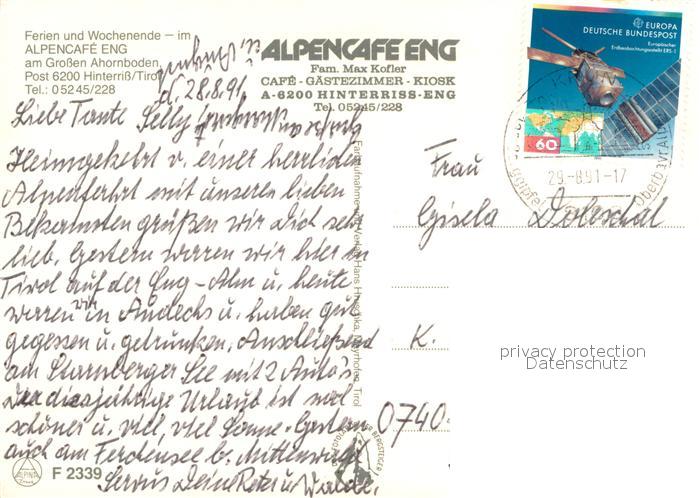 Ferien und Wochenende – im
ALPENCAFÉ ENG
am Großen Ahornboden,
Post 6200 Hinterriß/Tirol
Tel.: 05245/228
ALPENCAFE ENG
Fam. Max Kofler
CAFÉ - GÄSTEZIMMER - KIOSK
A-6200 HINTERRISS-ENG
Tel. 05245/228
d. 28.8.91
Liebe Tante Selly
Heimgekehrt v. einer herrlichen
Alpenfahrt mit unseren lieben
Bekannten grüßen wir Dich sehr
lieb. Gestern waren wir hier in
Tirol auf der Eng-Alm u. heute
waren wir in Andechs u. haben gut
gegessen u. getrunken. Anschließend
am Starnberger See mit 2 Auto's.
Der diesjährige Urlaub ist mal
schöner u. viel, viel Sonne. Gestern
auch am Ferchensee b. Mittenwald
Servus Deine Peter u.
F 2339
ALPINA
Verlag Hans Hruschka, Mayrhofen, Tirol
EUROPA
DEUTSCHE BUNDESPOST
Europäischer
Erdbeobachtungssatellit ERS-1
60
29.-8.91-17
Frau
Gisela Doleschal
K.
0740
privacy protection
Datenschutz